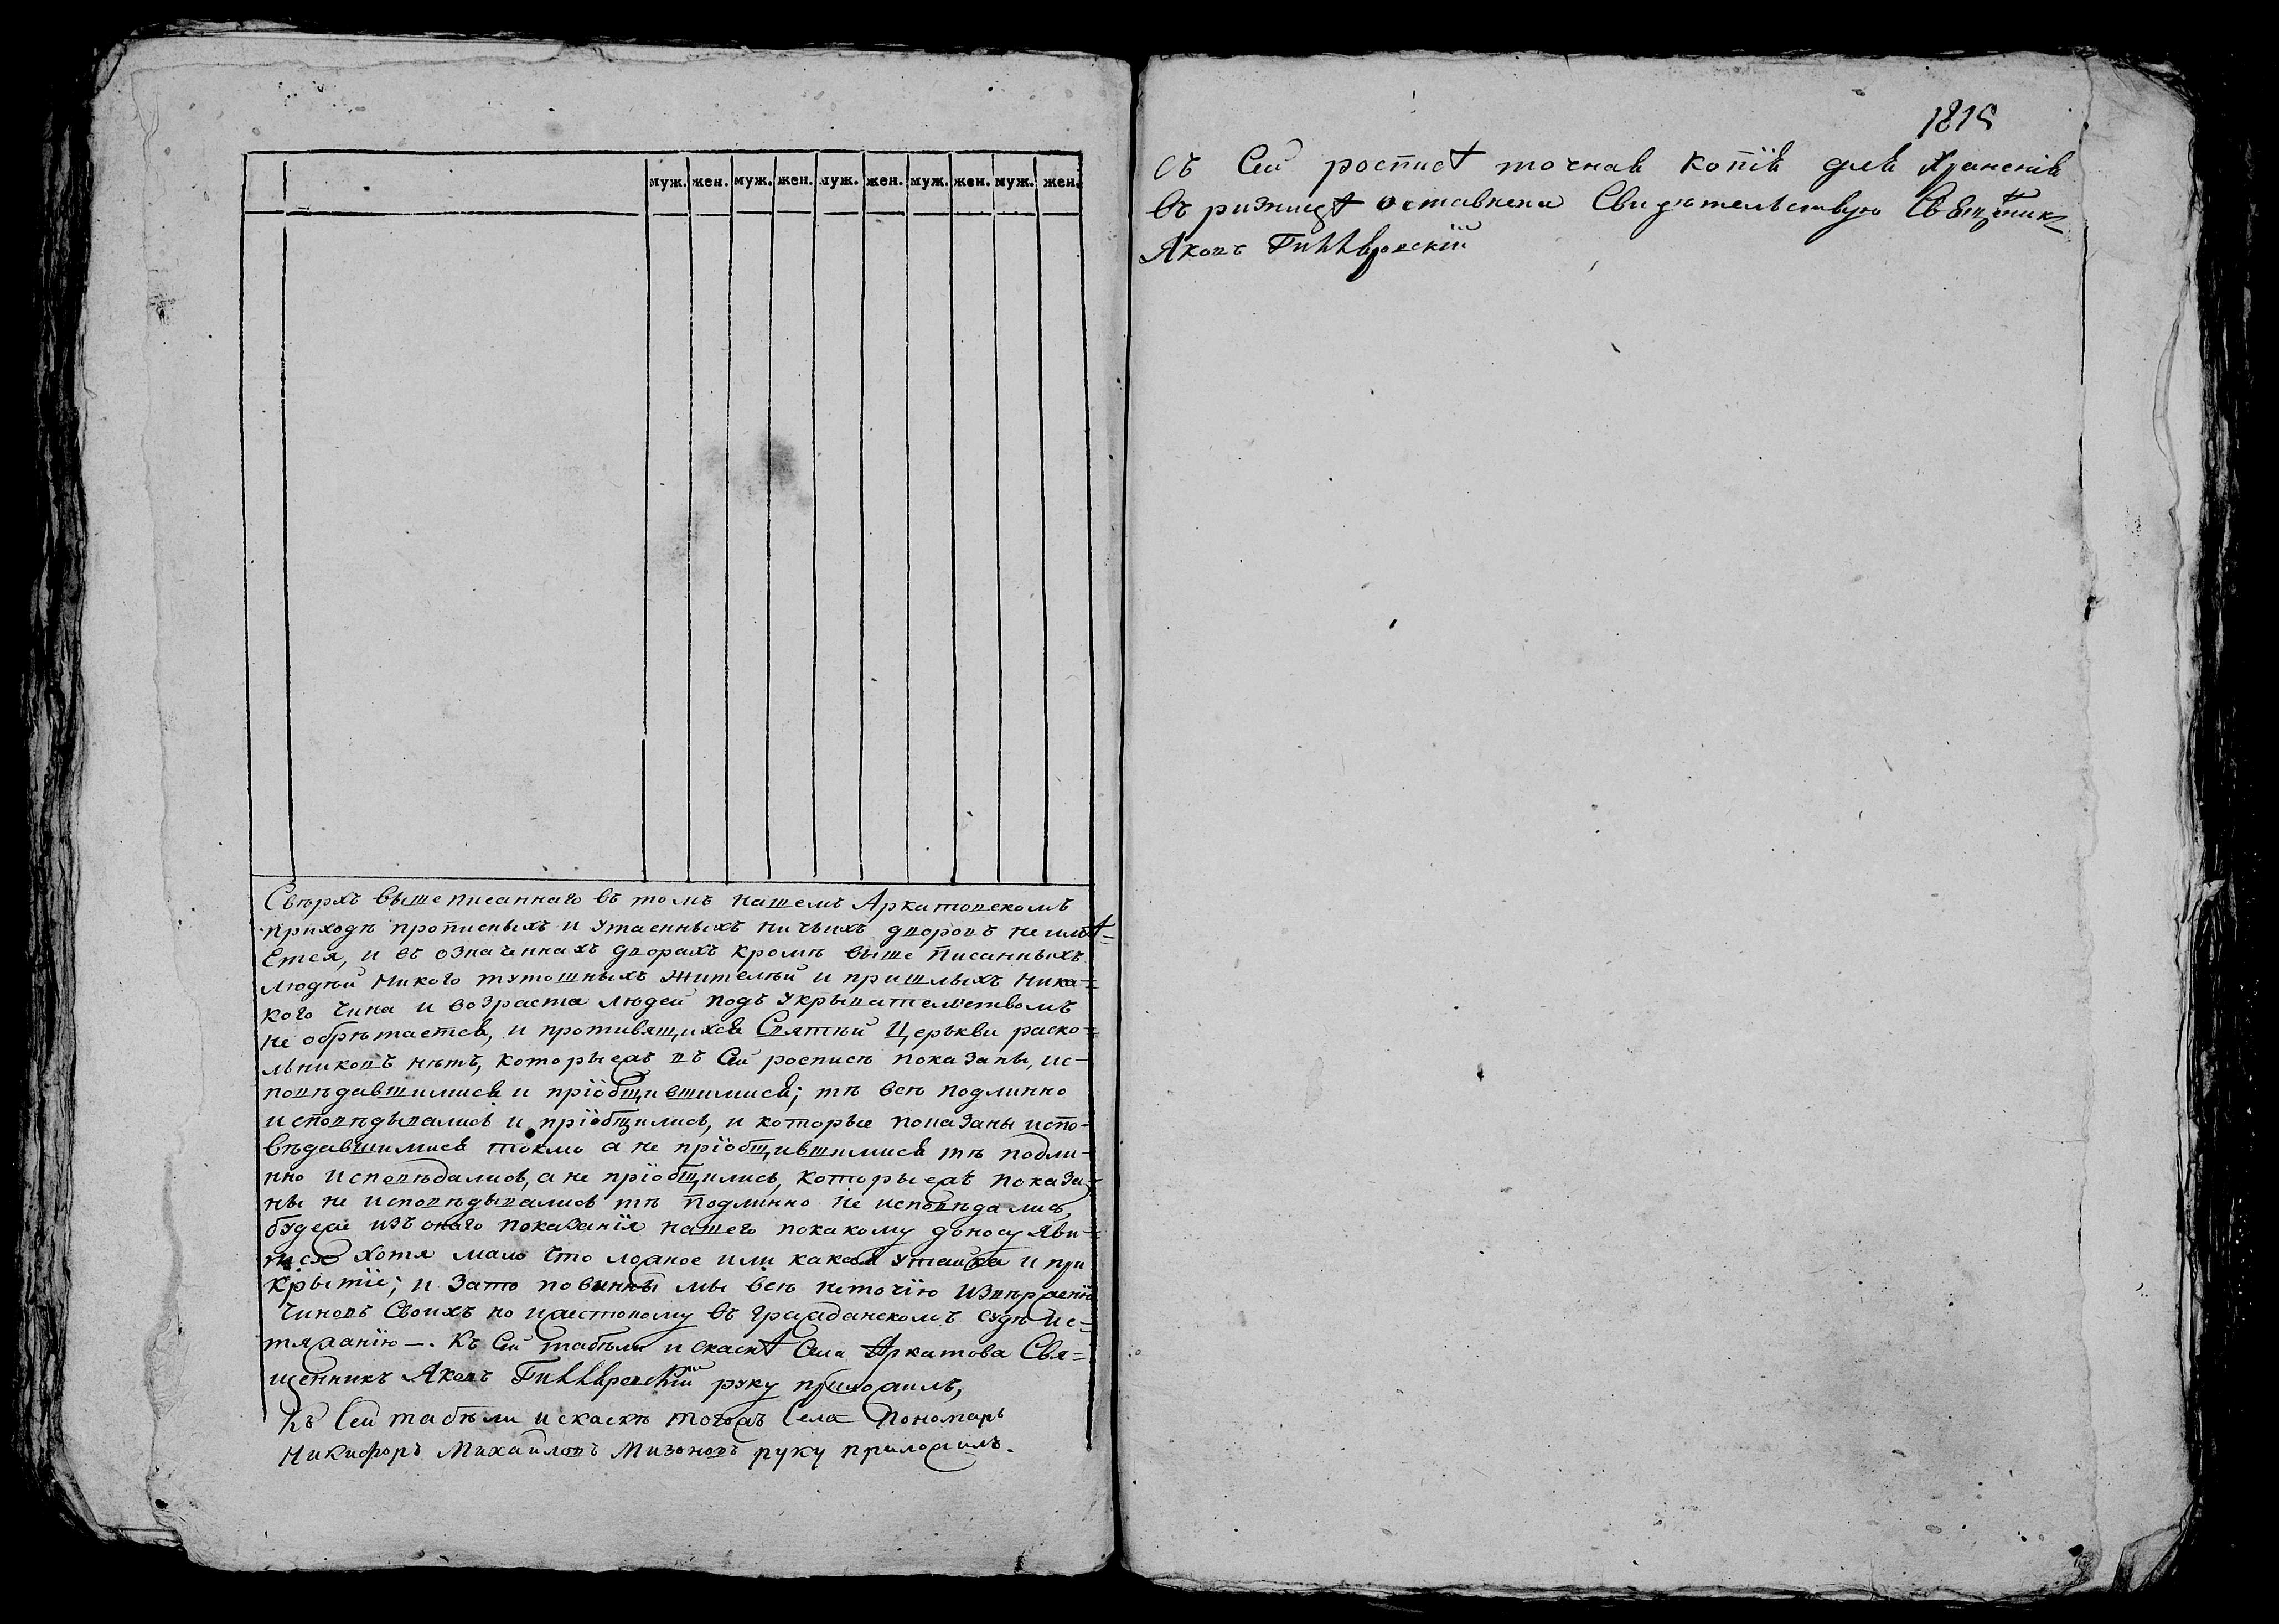 муж. жен. муж. жен. муж. жен. муж. жен. муж. жен.
Сверхъ вышеписаннаго въ томъ нашемъ Аркатовскомъ
приходѣ прописныхъ и утаенныхъ ничьихъ дворовъ не имѣ=
ется, и въ означеннахъ дворахъ кромѣ выше писанныхъ
людѣй никого тутошныхъ жителѣй и пришлыхъ ника=
кого чина и возраста людей подъ укрывателствомъ
не обрѣтается, и противящихся Святѣй Церькви раско=
льниковъ нѣтъ, которыежъ въ Сей росписѣ показаны, ис-
повѣдавшимися и пріобщившимися; тѣ всѣ подлинно
исповѣдывались и пріобщились, и которые показаны испо-
вѣдавшимися токмо а не пріобщившимися тѣ подли-
нно исповѣдались, а не пріобщились, которыежъ показа=
ны не исповѣдывались тѣ подлинно не исповѣдались,
будеже изъ онаго показанія нашего покакому доносу яви=
тся хотя мало что ложное или какая утайка и при
крытіе; и зато повинны мы всѣ неточію изверженію
чиновъ своихъ но и жестокому въ гражданскомъ судѣ ис=
тязанію —. Къ Сей табѣли искаскѣ Села Аркатова Свя=
щенникъ Яковъ руку приложилъ,
Къ Сей табѣли искаскѣ тогожъ Села Пономарь
Никифоръ Михайловъ Мизоновъ руку приложилъ.
1815
Съ Сей росписѣ точная копія для храненія
въ ризницѣ оставлена Свидѣтельствую Священник=
Яковъ